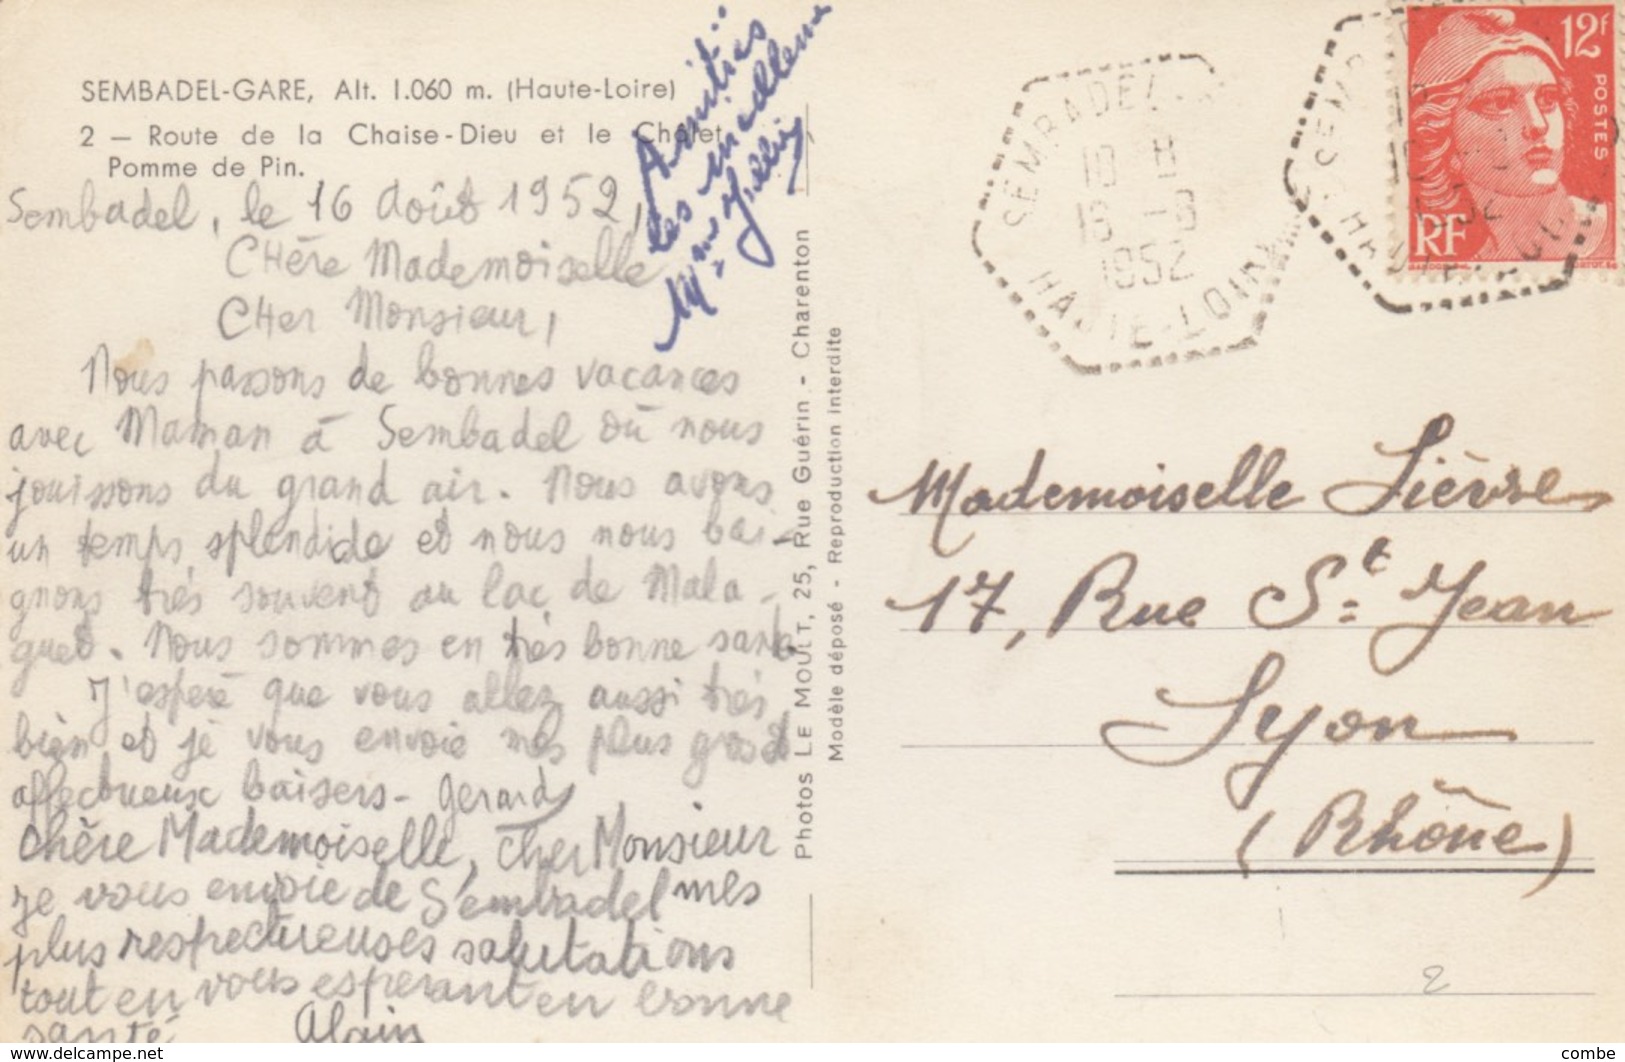 SEMBADEL-GARE, Alt. 1.060 m. (Haute-Loire)
2 — Route de la Chaise-Dieu et le Châlet
Pomme de Pin.
Sembadel, le 16 Août 1952,
CHère Mademoiselle
CHer Monsieur,
Nous passons de bonnes vacances
avec Maman à Sembadel où nous
jouissons du grand air. Nous avons
un temps splendide et nous nous bai-
gnons très souvent au lac de Mala-
guet. Nous sommes en très bonne santé
J'espère que vous allez aussi très
bien et je vous envoie mes plus gros et
affectueux baisers - Gerard
Chère Mademoiselle, cher Monsieur
je vous envoie de Sembadel mes
plus respectueuses salutations
tout en vous esperant en bonne
santé Alain
Amitiés
les
Photos LE MOULT, 25, Rue Guérin - Charenton
Modèle déposé - Reproduction interdite
SEMBADEL
10 H
16 -8
1952
HAUTE-LOIRE
12F
POSTES
RF
Mademoiselle Lièvre
17, Rue St Jean
Lyon
(Rhône)
2
www.delcampe.net
combe